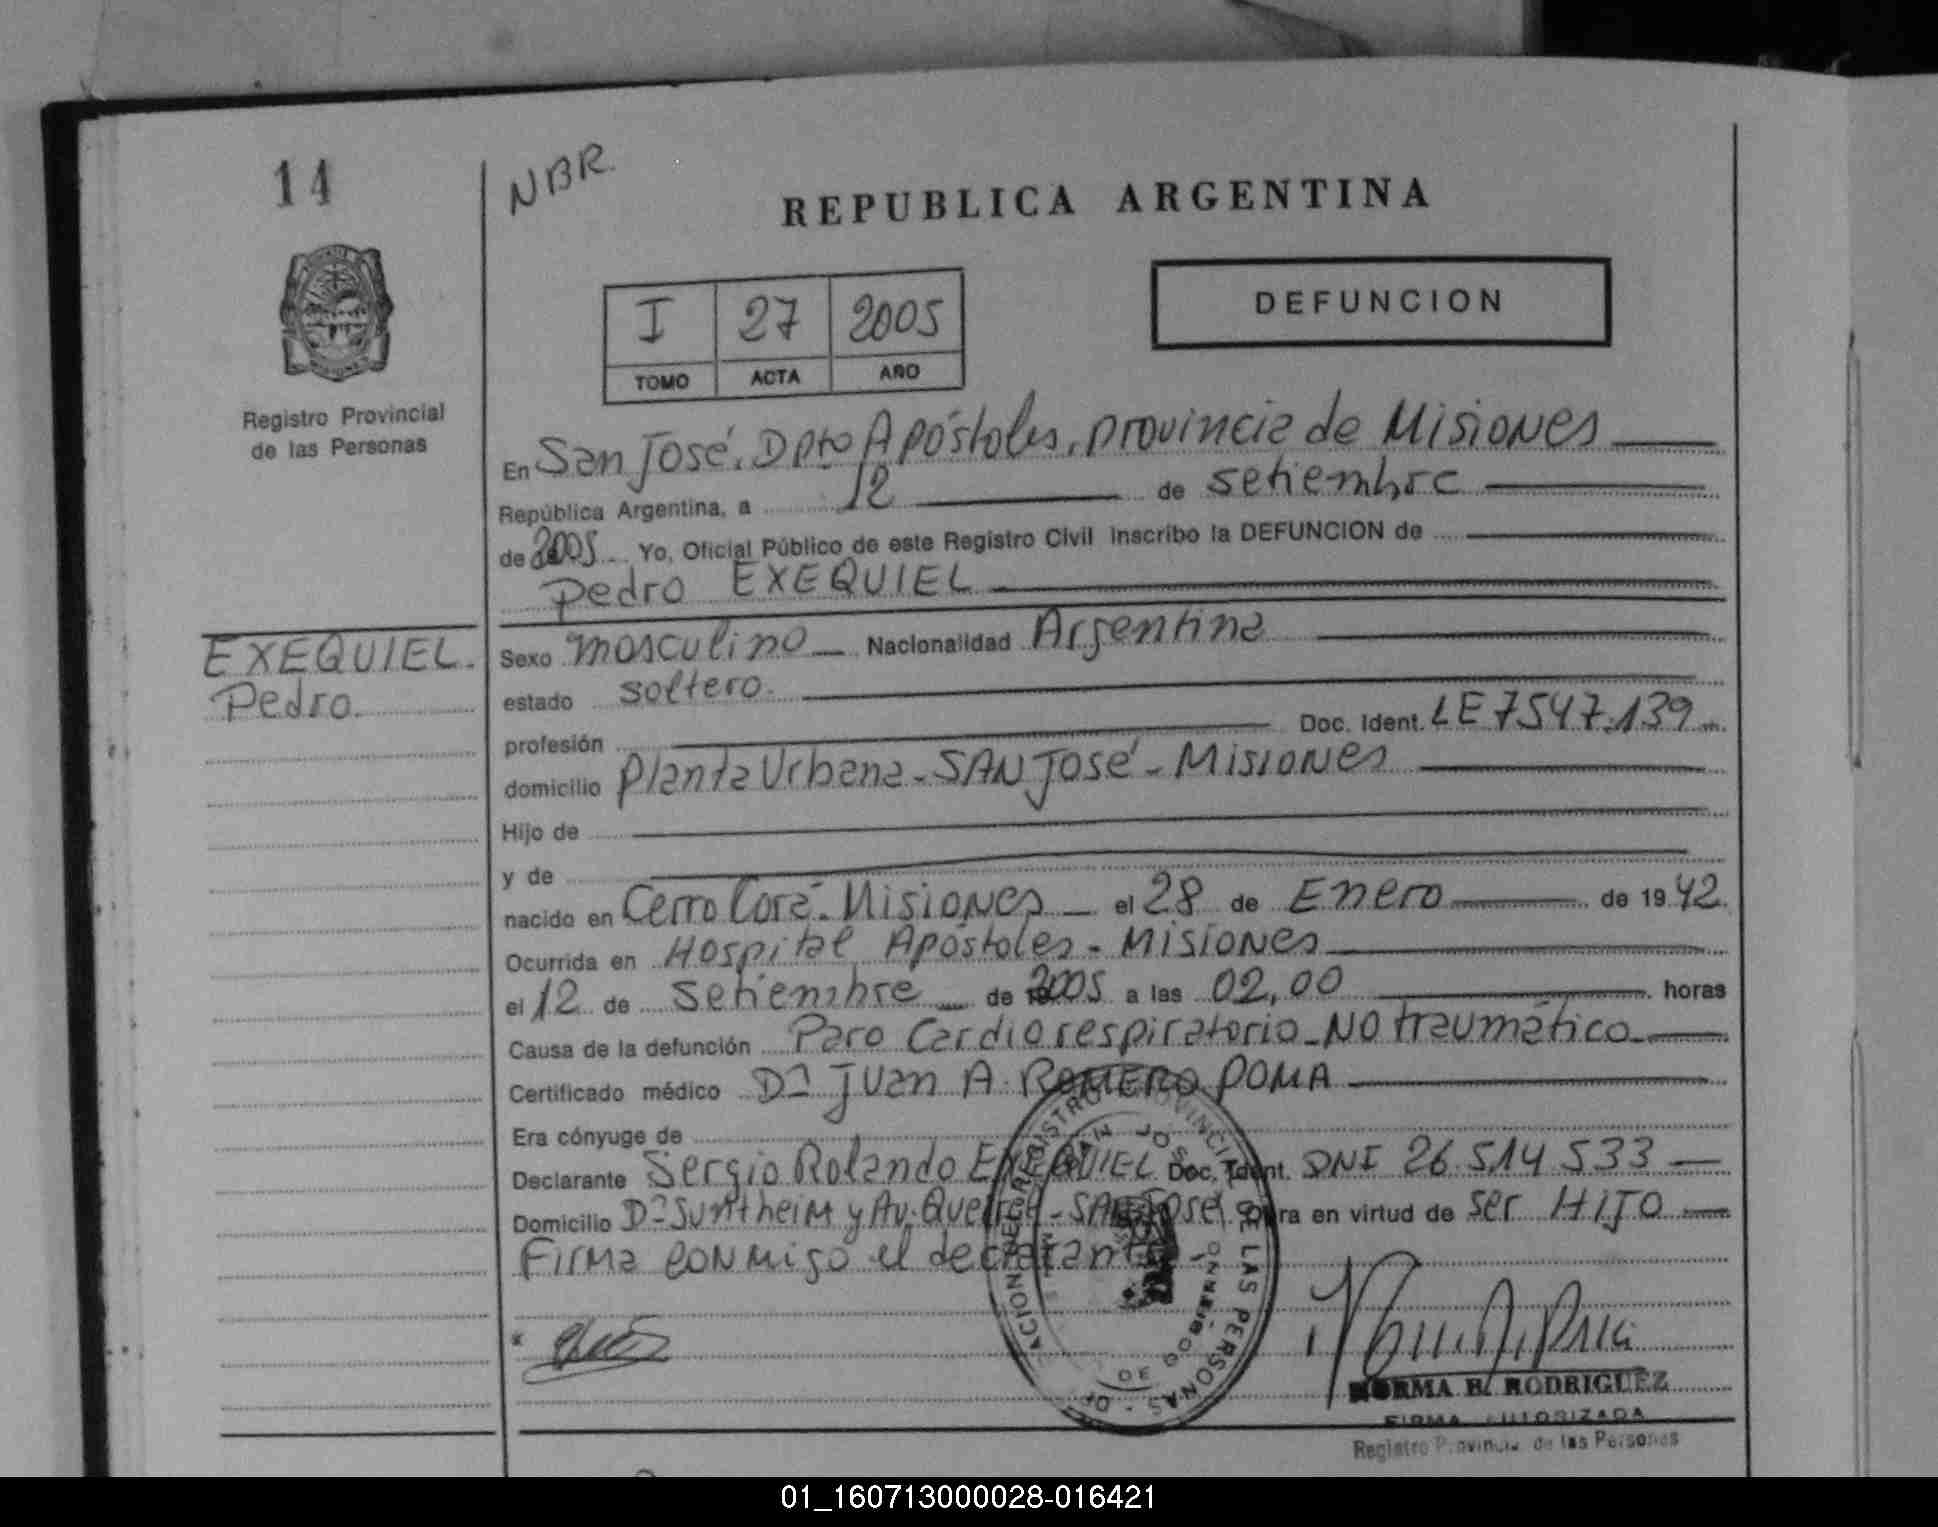 14
NBR.
REPUBLICA ARGENTINA
I 27 2005
TOMO ACTA AÑO
DEFUNCION
Registro Provincial
de las Personas
En San José, Dpto Apóstoles, provincia de Misiones
República Argentina, a 12 de setiembre
de 2005 Yo, Oficial Público de este Registro Civil Inscribo la DEFUNCION de
Pedro EXEQUIEL
EXEQUIEL.
Pedro.
Sexo masculino Nacionalidad Argentina
estado soltero.
profesión Doc. Ident. LE 7547.139
domicilio Planta Urbana - SAN José - Misiones
Hijo de
y de
nacido en Cerro Corá - Misiones el 28 de Enero de 1942.
Ocurrida en Hospital Apóstoles - Misiones
el 12 de Setiembre de 2005 a las 02,00 horas
Causa de la defunción Paro Cardiorespiratorio - NO traumático
Certificado médico Dr Juan A. ROMERO POMA
Era cónyuge de
Declarante Sergio Rolando EXEQUIEL Doc. Ident. DNI 26.514.533
Domicilio Dr Suntheim y Av. - SAN José Obra en virtud de ser HIJO
Firma conmigo el declarante
NORMA B. RODRIGUEZ
FIRMA AUTORIZADA
Registro Provincial de las Personas
01_160713000028-016421